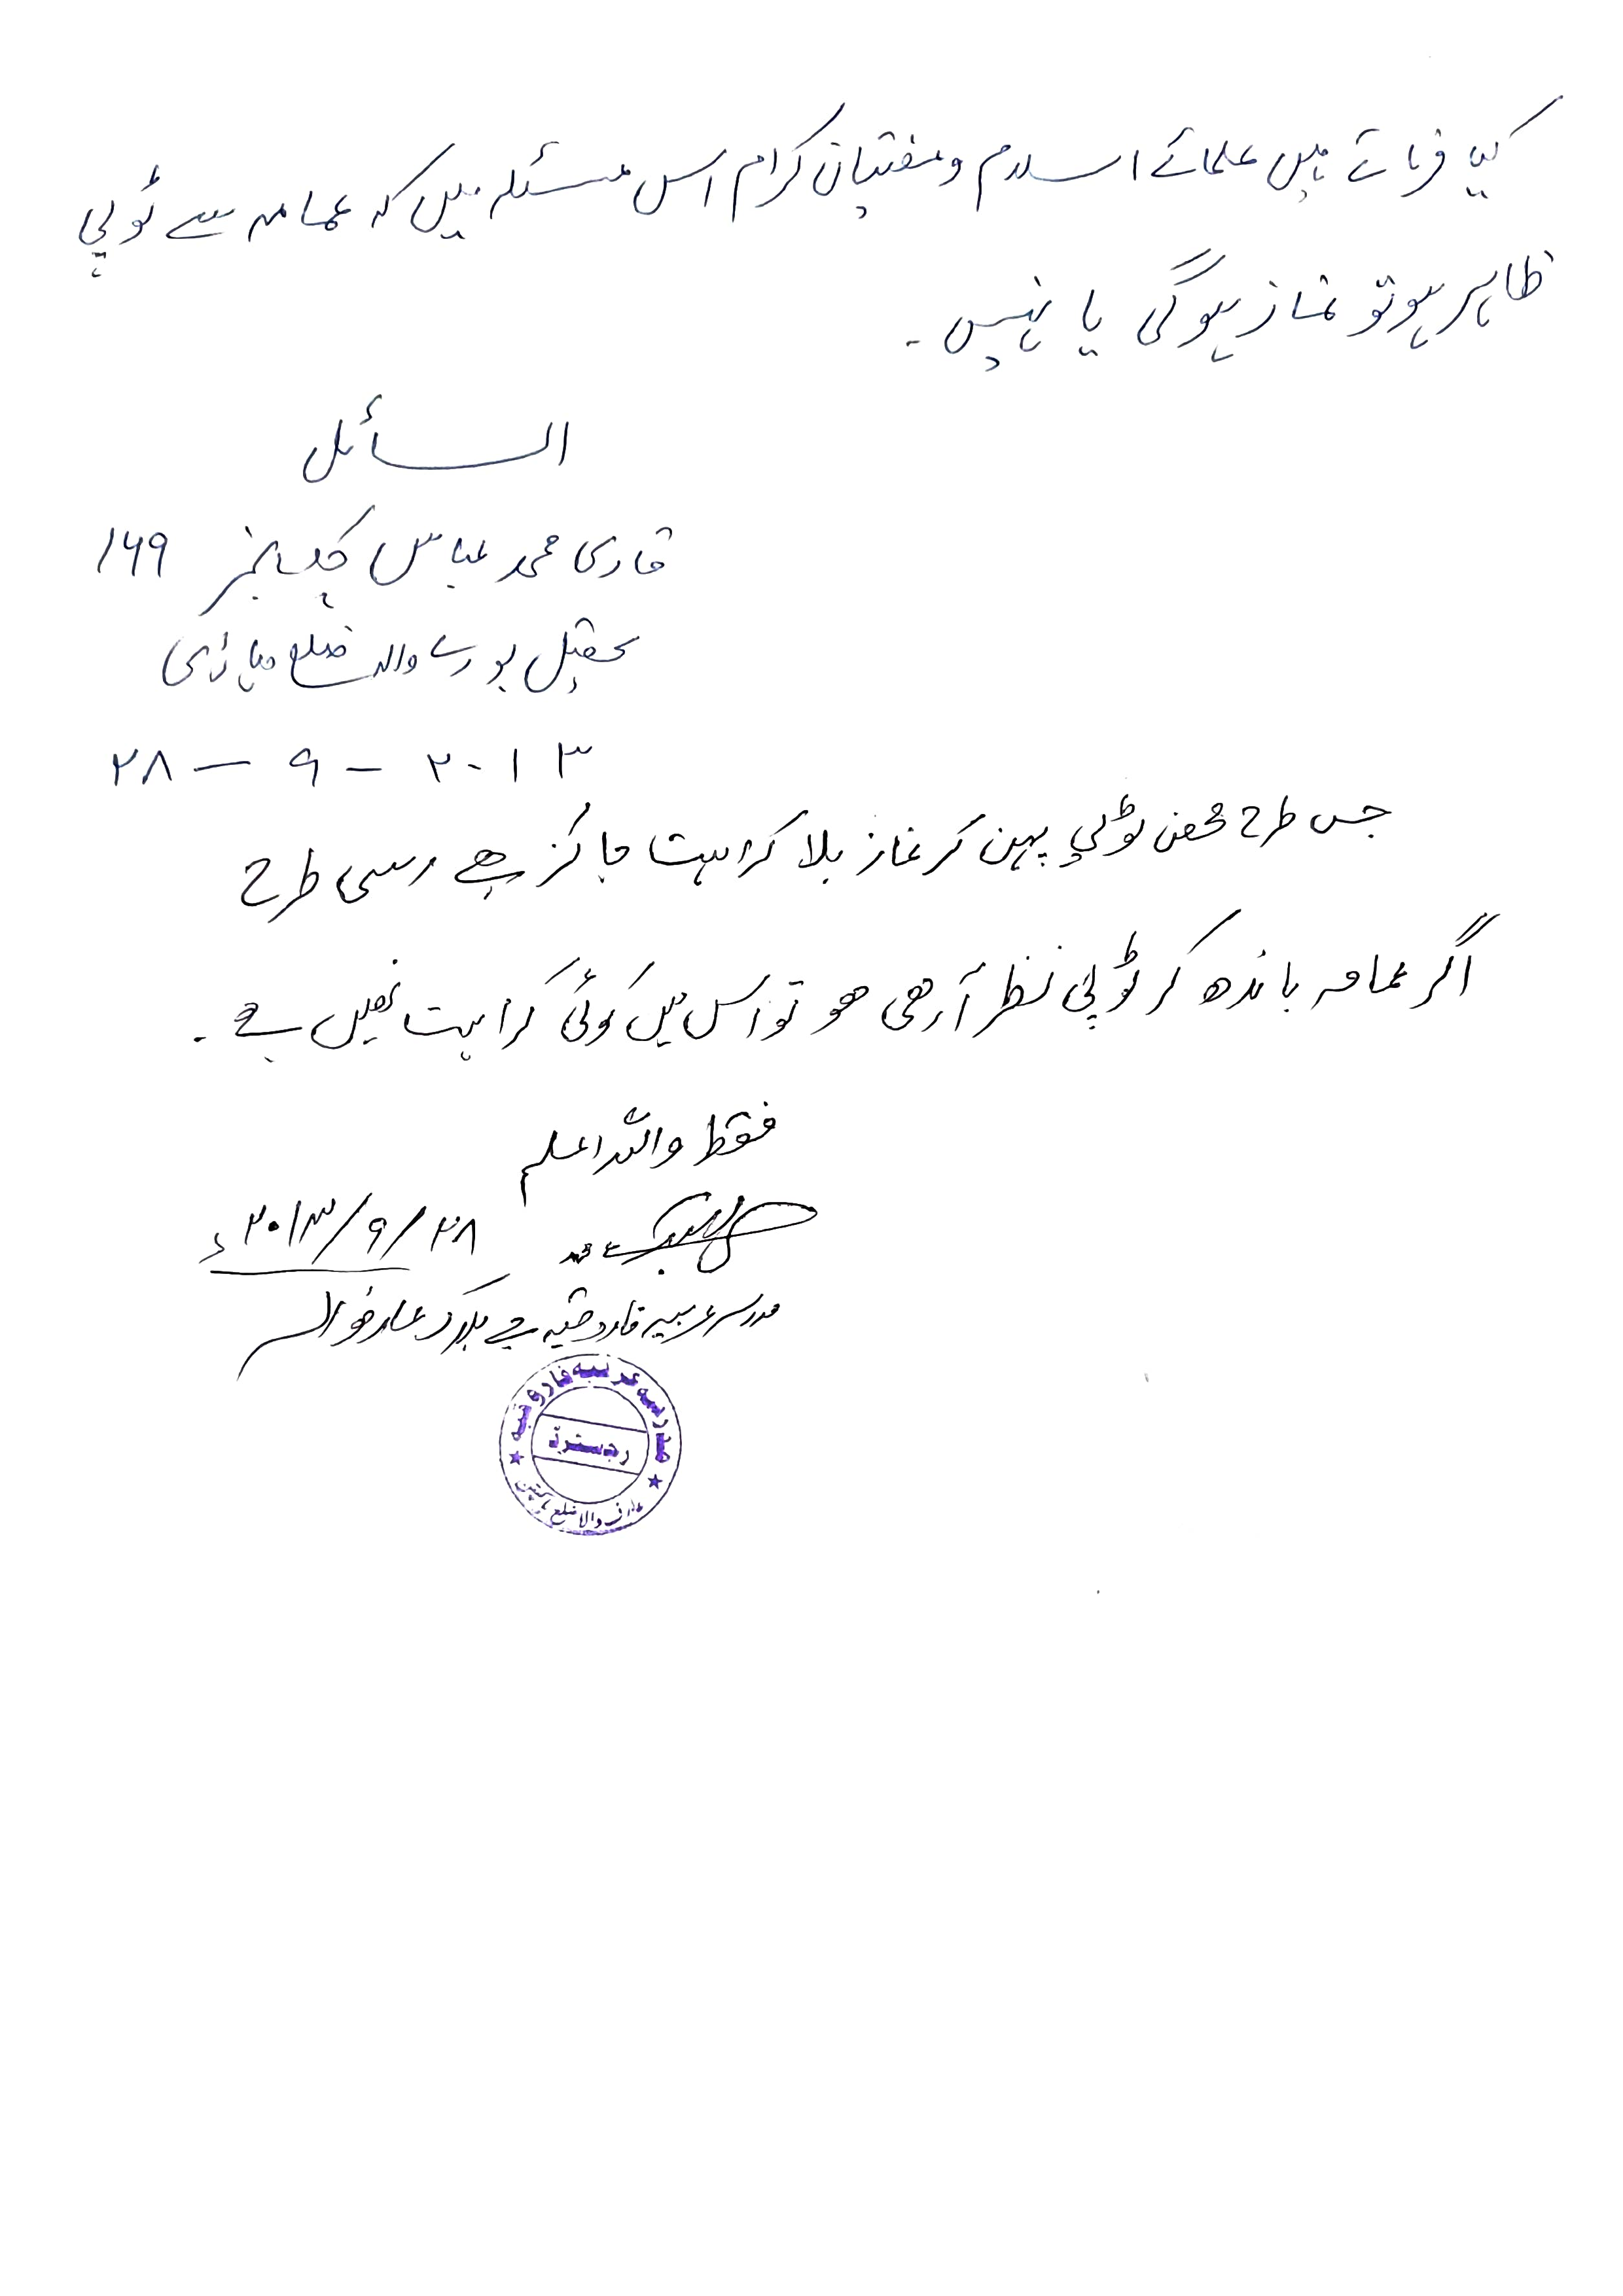 کیا فرماتے ہیں علمائے اسلام و مفتیان کرام اس مسئلہ میں کہ عمامہ سے ٹوپی
ظاہر ہو تو نماز ہوگی یا نہیں ۔
السائل
قاری محمد عباس چک نمبر ۱۶۹
تحصیل بورے والہ ضلع وہاڑی
۲۸ – ۹ – ۲۰۱۳
جس طرح محض ٹوپی پہن کر نماز بلا کراہت جائز ہے اسی طرح
اگر عمامہ باندھ کر ٹوپی نظر آرھی ھو تو اس میں کوئی کراہت نھیں ہے ۔
فقط واللہ اعلم
۲۸/۹/۲۰۱۳ء
مدرسہ عربیہ فاروقیہ جے بلاک عارفوالہ
مدرسہ عربیہ فاروقیہ
رجسٹرڈ
عارف والا ضلع پاکپتن